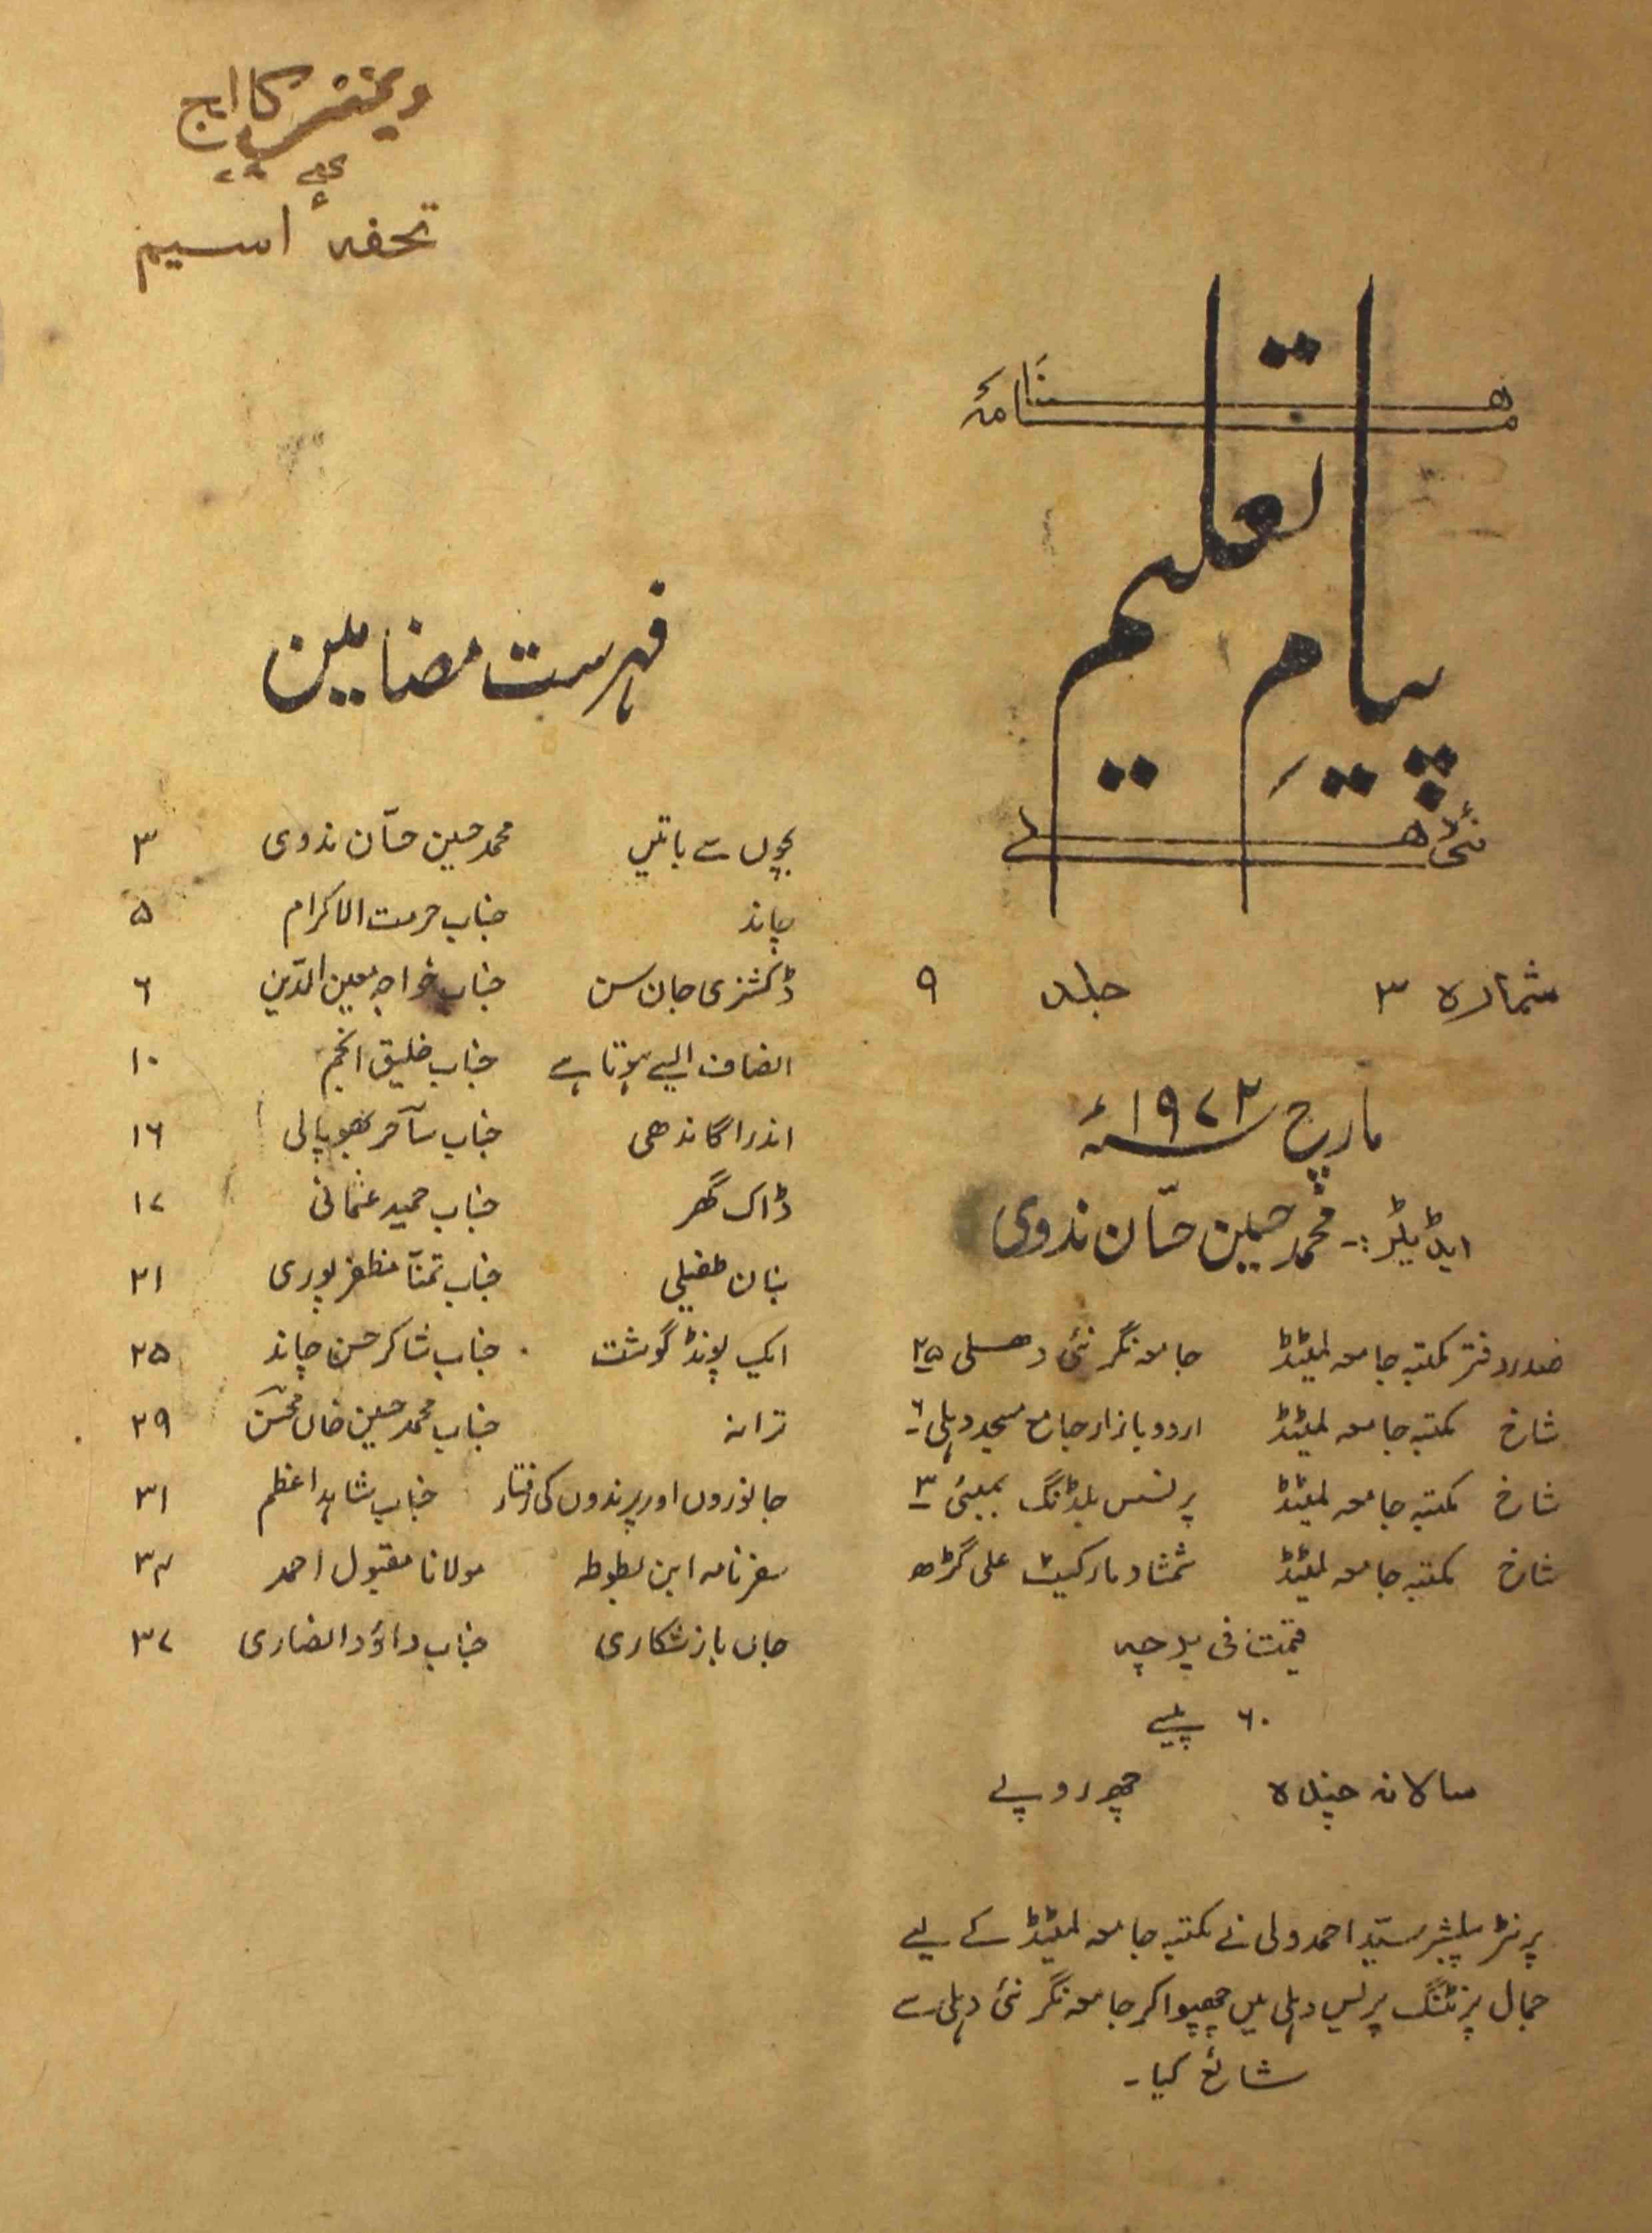 ویمنس کالج
کے لیے
تحفہ اسیم
ماہنامہ
پیامِ تعلیم
نئی دہلی
شمارہ ۳ جلد ۹
مارچ ۱۹۷۲ء
ایڈیٹر:۔ محمد حسین حسّان ندوی
صدر دفتر مکتبہ جامعہ لمیٹڈ جامعہ نگر نئی دہلی ۲۵
شاخ مکتبہ جامعہ لمیٹڈ اردو بازار جامع مسجد دہلی ۶
شاخ مکتبہ جامعہ لمیٹڈ پرنسس بلڈنگ بمبئی ۳
شاخ مکتبہ جامعہ لمیٹڈ شمشاد مارکیٹ علی گڑھ
قیمت فی پرچہ
۶۰ پیسے
سالانہ چندہ چھ روپے
پرنٹر پبلشر سیّد احمد ولی نے مکتبہ جامعہ لمیٹڈ کے لیے
جمال پرنٹنگ پریس دہلی میں چھپوا کر جامعہ نگر نئی دہلی سے
شائع کیا۔
فہرست مضامین
بچوں سے باتیں محمد حسین حسّان ندوی ۳
چاند جناب حرمت الاکرام ۵
ڈکشنری جان سن جناب خواجہ معین الدّین ۶
انصاف ایسے ہوتا ہے جناب خلیق انجم ۱۰
اندرا گاندھی جناب ساحر بھوپالی ۱۶
ڈاک گھر جناب حمید عثمانی ۱۷
بنان طفیلی جناب تمنّا مظفر پوری ۲۱
ایک پونڈ گوشت جناب شاکر حسن چاند ۲۵
ترانہ جناب محمد حسین خاں محسن ۲۹
جانوروں اور پرندوں کی رفتار جناب شاہد اعظم ۳۱
سفرنامہ ابن بطوطہ مولانا مقبول احمد ۳۴
جاں باز شکاری جناب داؤد انصاری ۳۷